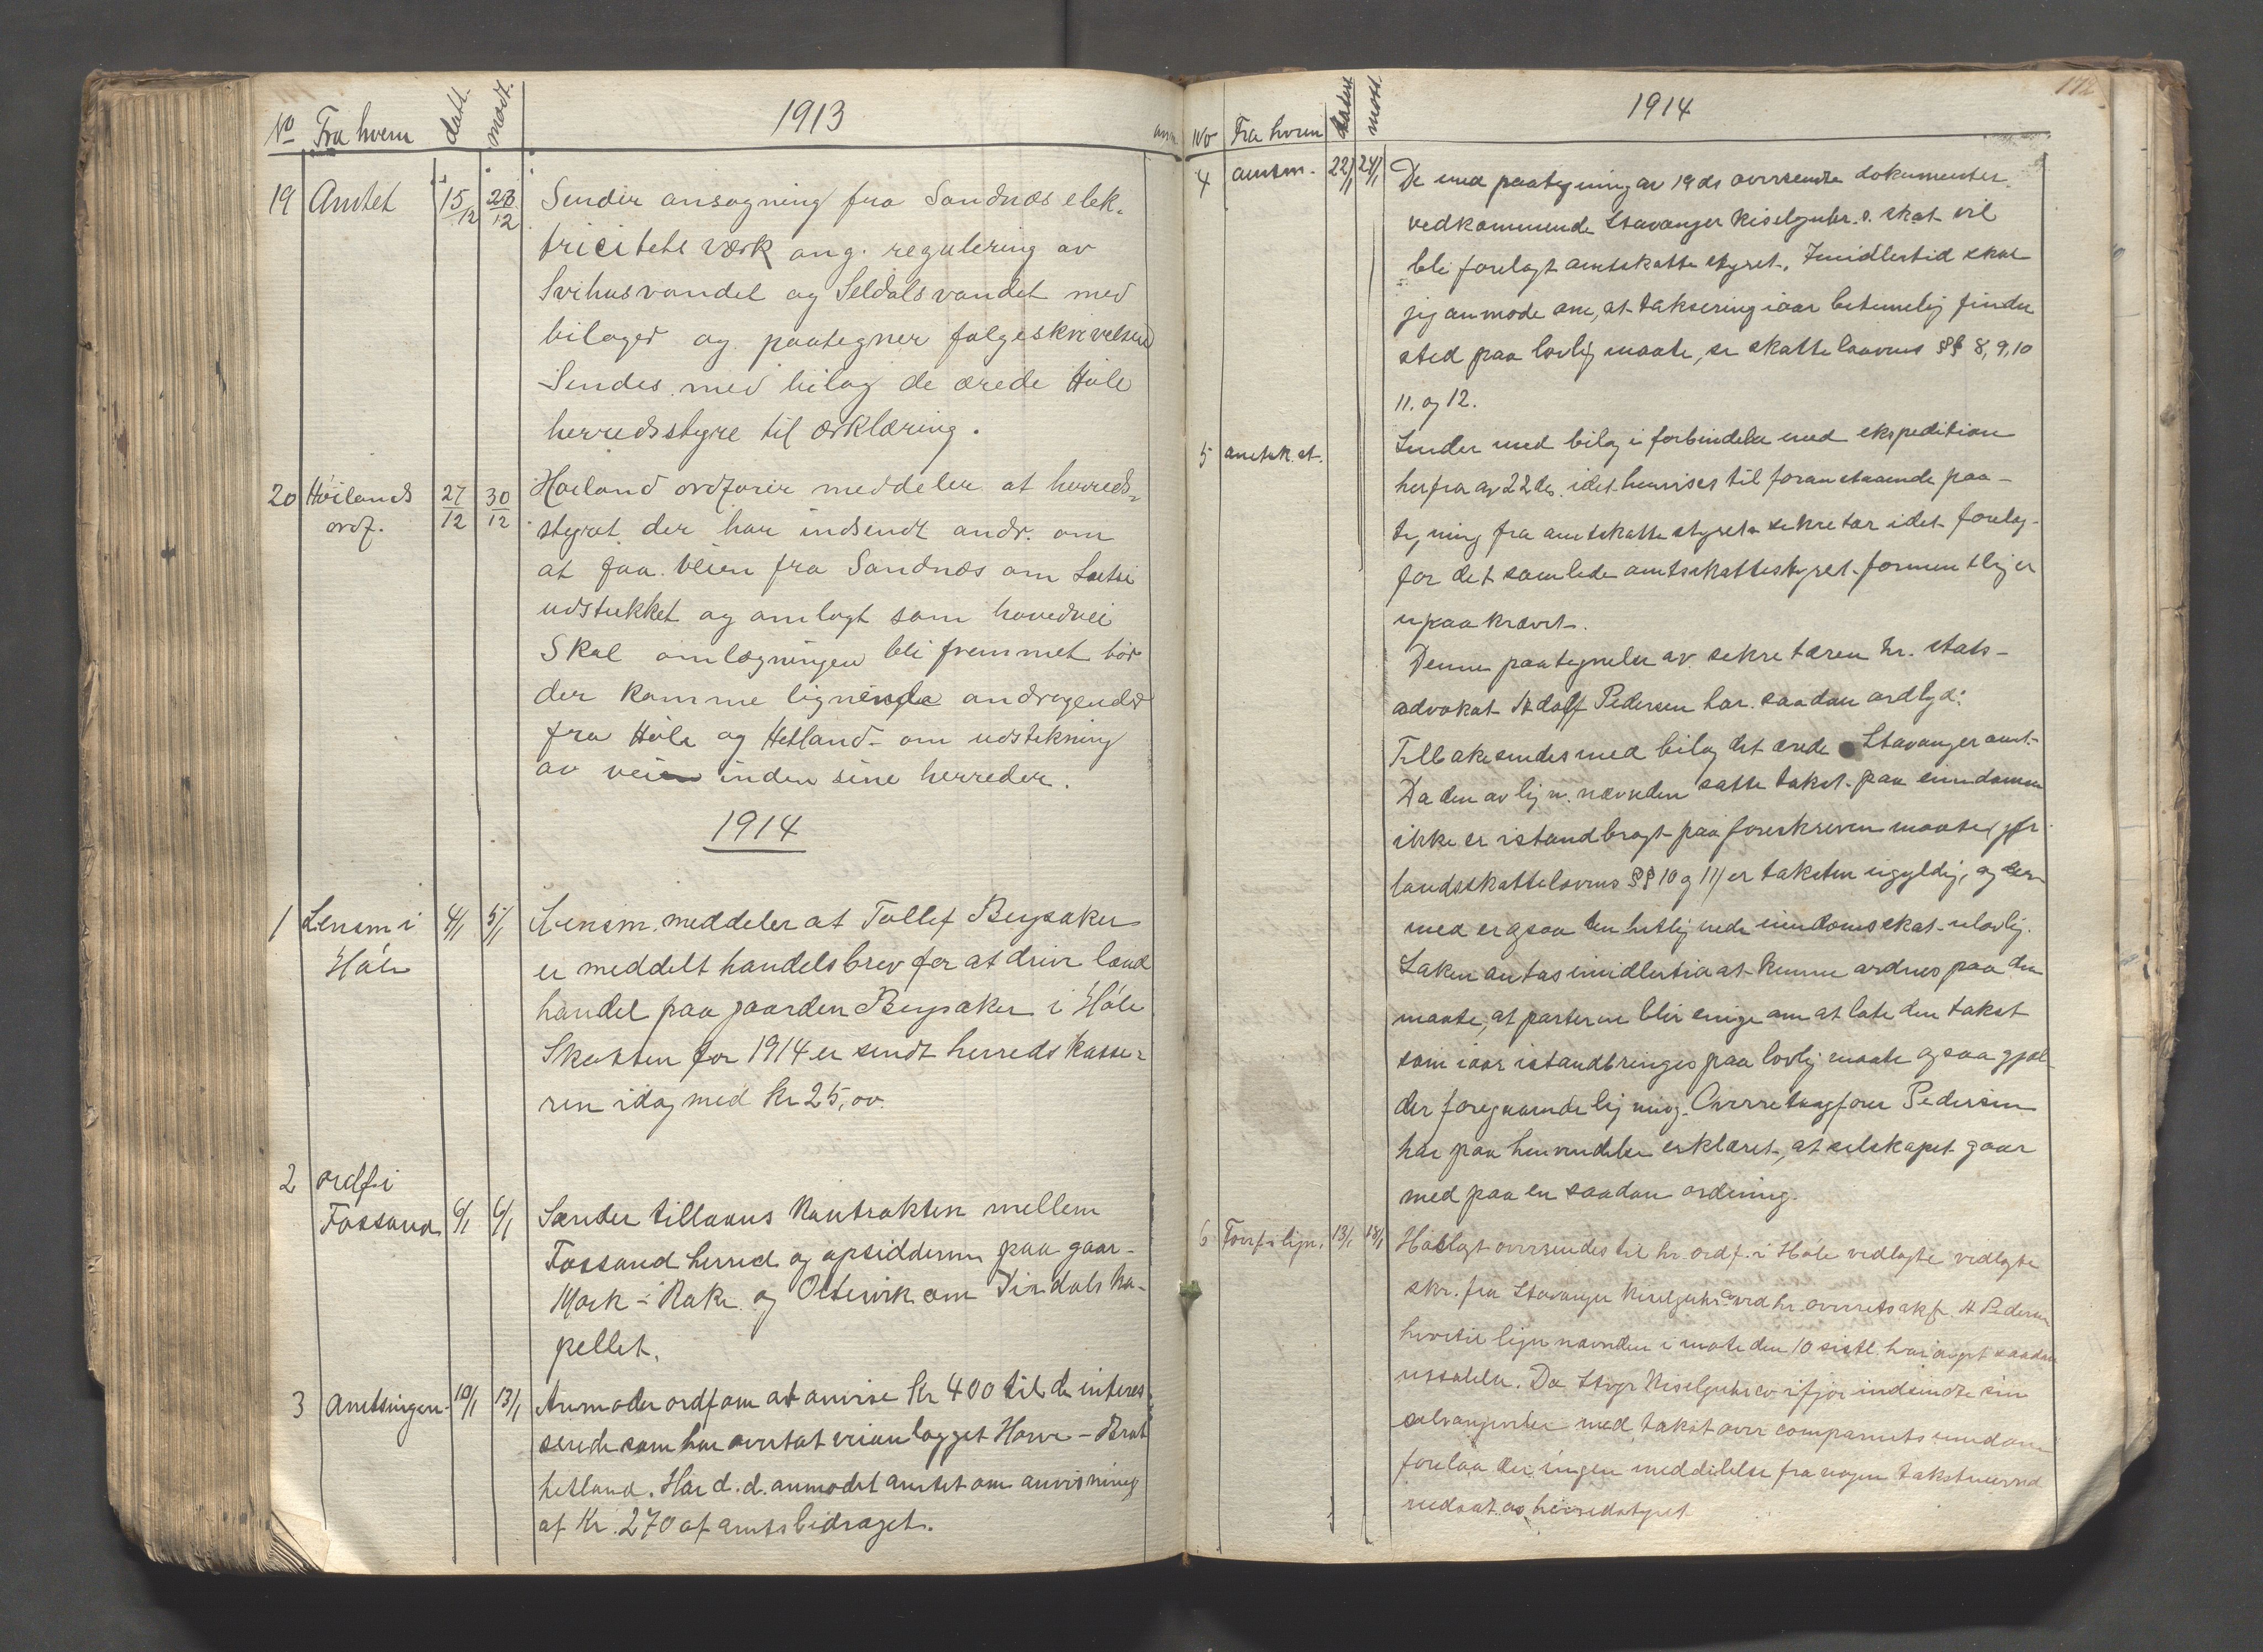 1913
No Fra hvem datt. modt.
19 Amtet 15/12 23/12 Sender ansøgning fra Sandnæs elek-
tricitets værk ang. regulering av
Svihusvandet og Seldalsvandet med
bilager og paategner følgeskrivelsen
Sendes med bilag de ærede Høle
herredsstyre til ærklæring.
20 Høilands ordf. 27/12 30/12 Høiland ordfører meddeler at herreds-
styret der har indsendt andr. om
at faa veien fra Sandnæs om
udstukket og omlagt som hovedvei
Skal omlægningen bli fremmet bør
der komme lignende andragender
fra Høle og Hetland om udstikning
av veien inden sine herreder.
1914
1 Lensm i Høle 4/1 5/1 Lensm. meddeler at Tollef Bersaker
er meddelt handelsbrev for at drive land
handel paa gaarden Bersaker i Høle
Skatten for 1914 er sendt herredskasse-
ren idag med Kr 25,00.
2 ordf. i
Fossand 6/1 6/1 Sender tillaans Kontrakten mellem
Fossand herred og opsidderne paa gaar-
Mæk - Røke og Oltesvik om Dirdals ka-
pellet.
3 Amtsingen. 10/1 13/1 Anmoder ordf om at anvise Kr 400 til de interes-
serede som har overtat veianlægget Høve - Brat
hetland. Har d.d. anmodet amtet om anvisning
af Kr. 270 af amtsbidraget.
172
1914
No Fra hvem datert mott.
4 amtm. 22/1 24/1 De med paategning av 19 ds oversendte dokumenter
vedkommende Stavanger Kiselguhr. s. skat vil
bli forelagt amtskattestyret. Imidlertid skal
jeg anmode om, at taksering iaar betimelig finder
sted paa lovlig maate, se skattelovens §§ 8, 9, 10
11. og 12.
5 amtsk. st. Sender med bilag i forbindelse med ekspedition
herfra av 22 ds. idet henvises til foranstaaende paa-
tegning fra amtskattestyrets sekretær idet forelæg-
for det samlede amtsskattestyret formentlig er
upaakrævet.
Denne paategnelse av sekretæren hr. stats-
advokat Adolf Pedersen har saadan ordlyd:
Tilbakesendes med bilag det ærede Stavanger amt.
Da den av lign. nævnden satte takst paa eiendommen
ikke er istandbragt paa foreskreven maate, jfr
landsskattelovens §§ 10 og 11 er taksten ugyldig, og der-
med er ogsaa den utlignede eiendomsskat ulovlig.
Saken antas imidlertid at kunne ordnes paa den
maate, at parterne blir enige om at late den takst
som iaar istandbringes paa lovlig maate ogsaa gjæl-
der foregaaende ligning. Overretssagfører Pedersen
har paa henvendelse erklæret, at selskapet gaar
med paa en saadan ordning.
6 Forf. i lign. 13/1 13/1 oversendes til hr. ordf. i Høle vedlagte vedlagte
skr. fra Stavanger Kiselguhr co ved hr. overretssakf. A Pedersen
hvortil lign nævnden i møte den 10 sistl. har avgit saadan
uttalelse. Da Stvgr Kiselguhr co ifjor indsendte sin
selvangivelse med takst over companiets eiendom
forelaa der ingen meddelelse fra nogen takstnævnd
nedsat av herredstyret